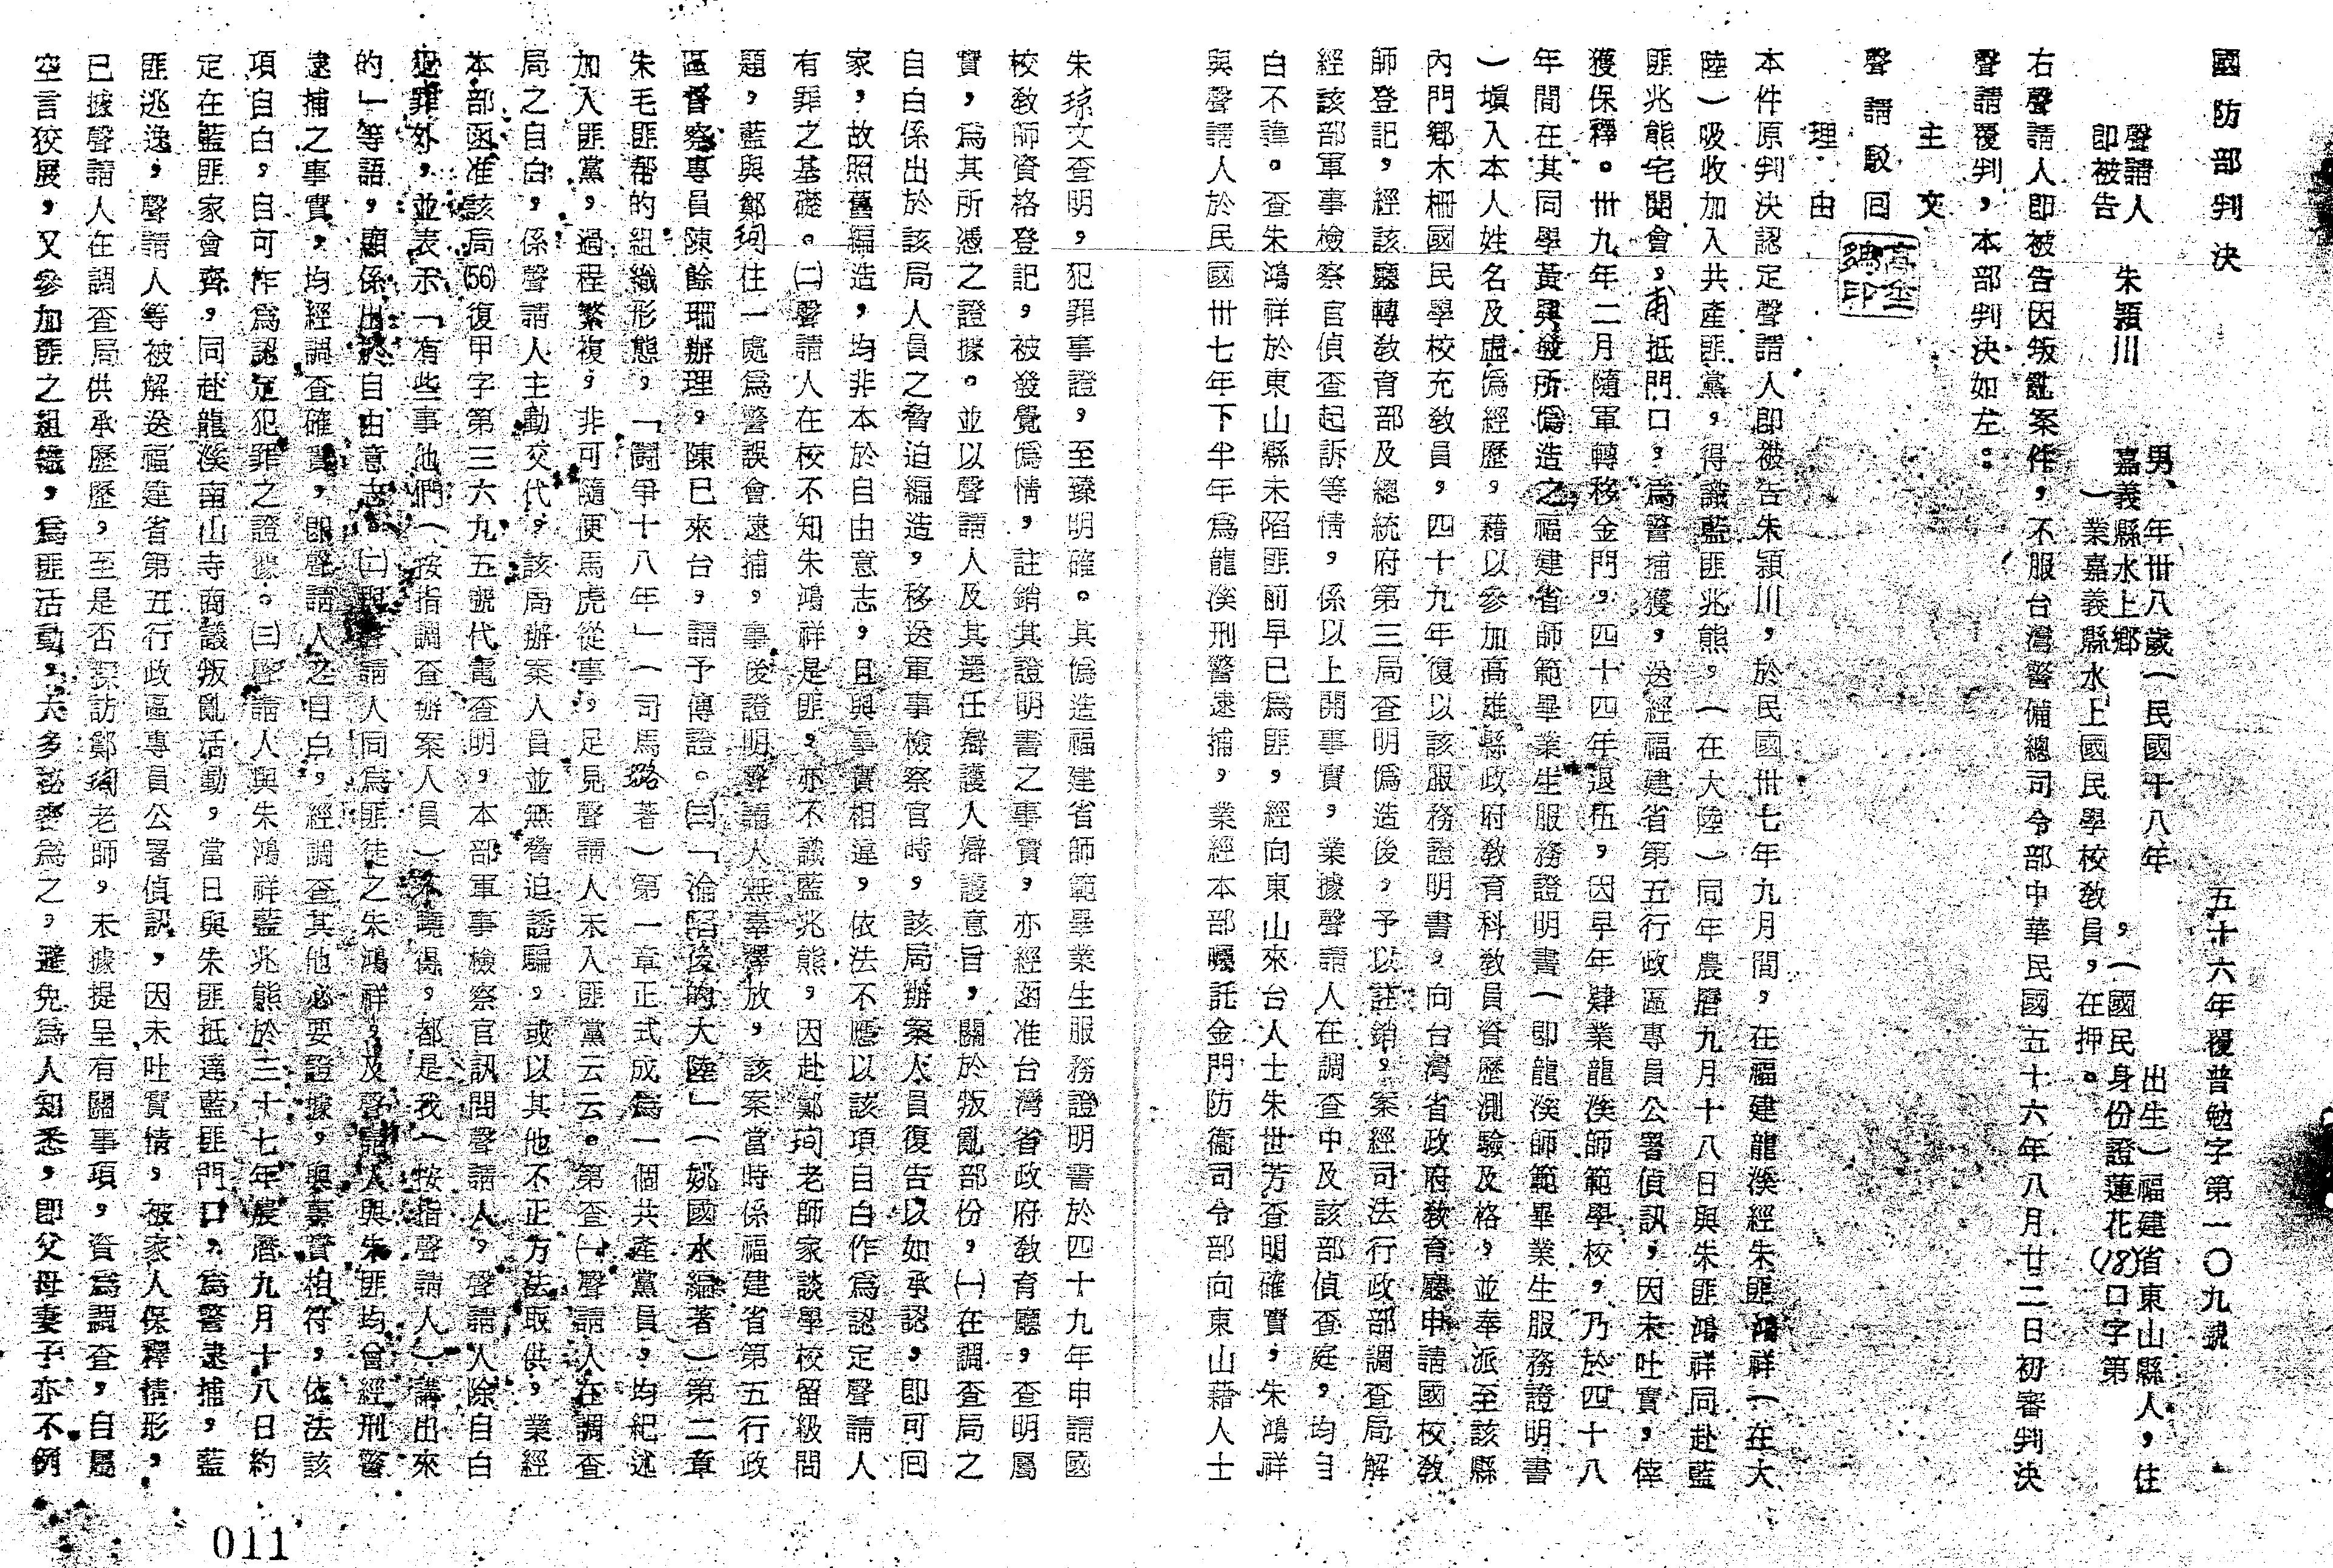 國防部判決
五十六年覆普勉字第一〇九號
聲請人
即被告
朱潁川
男、年卅八歲(民國十八年 出生)福建省東山縣人,住
嘉義縣水上鄉 。(國民身份證蓮花(18)口字第
)業嘉義縣水上國民學校教員,在押。
右聲請人即被告因叛亂案件,不服台灣警備總司令部中華民國五十六年八月廿二日初審判決
聲請覆判,本部判決如左:
主文
聲請駁回
理由
本件原判決認定聲請人即被告朱潁川,於民國卅七年九月間,在福建龍溪經朱匪鴻祥(在大
陸)吸收加入共產匪黨,得識藍匪兆熊,(在大陸)同年農曆九月十八日與朱匪鴻祥同赴藍
匪兆熊宅開會,甫抵門口,為警捕獲,送經福建省第五行政區專員公署偵訊,因未吐實,倖
獲保釋。卅九年二月隨軍轉移金門,四十四年退伍,因早年肄業龍溪師範學校,乃於四十八
年間在其同學黃興發所偽造之福建省師範畢業生服務證明書(即龍溪師範畢業生服務證明書
)填入本人姓名及虛偽經歷,藉以參加高雄縣政府教育科教員資歷測驗及格,並奉派至該縣
內門鄉木柵國民學校充教員,四十九年復以該服務證明書,向台灣省政府教育廳申請國校教
師登記,經該廳轉教育部及總統府第三局查明偽造後,予以註銷,案經司法行政部調查局解
經該部軍事檢察官偵查起訴等情,係以上開事實,業據聲請人在調查中及該部偵查庭,均自
白不諱。查朱鴻祥於東山縣未陷匪前早已為匪,經向東山來台人士朱世芳查明確實,朱鴻祥
與聲請人於民國卅七年下半年為龍溪刑警逮捕,業經本部囑託金門防衛司令部向東山藉人士
朱琼文查明,犯罪事證,至臻明確。其偽造福建省師範畢業生服務證明書於四十九年申請國
校教師資格登記,被發覺偽情,註銷其證明書之事實,亦經函准台灣省政府教育廳,查明屬
實,為其所憑之證據。並以聲請人及其選任辯護人辯護意旨,關於叛亂部份,㈠在調查局之
自白係出於該局人員之脅迫編造,移送軍事檢察官時,該局辦案人員復告以如承認,即可回
家,故照舊編造,均非本於自由意志,且與事實相違,依法不應以該項自白作為認定聲請人
有罪之基礎。㈡聲請人在校不知朱鴻祥是匪,亦不識藍兆熊,因赴鄭珣老師家談學校留級問
題,藍與鄭珣住一處為警誤會逮捕,事後證明聲請人無辜釋放,該案當時係福建省第五行政
區督察專員陳餘珊辦理,陳已來台,請予傳證。㈢「淪陷後的大陸」(姚國水編著)第二章
朱毛匪幫的組織形態,「鬪爭十八年」(司馬璐著)第一章正式成為一個共產黨員,均紀述
加入匪黨,過程繁複,非可隨便馬虎從事,足見聲請人未入匪黨云云。第查㈠聲請人在調查
局之自白,係聲請人主動交代,該局辦案人員並無脅迫誘騙,或以其他不正方法取供,業經
本部函准該局(56)復甲字第三六九五號代電查明,本部軍事檢察官訊問聲請人,聲請人除自白
犯罪外,並表示「有些事他們(按指調查辦案人員)不曉得,都是我(按指聲請人)講出來
的」等語,顯係出於自由意志。㈡與聲請人同為匪徒之朱鴻祥,及聲請人與朱匪均曾經刑警
逮捕之事實,均經調查確實,即聲請人之自白,經調查其他必要證據,與事實相符,依法該
項自白,自可作為認定犯罪之證據。㈢聲請人與朱鴻祥藍兆熊於三十七年農曆九月十八日約
定在藍匪家會齊,同赴龍溪南山寺商議叛亂活動,當日與朱匪抵達藍匪門口,為警逮捕,藍
匪逃逸,聲請人等被解送福建省第五行政區專員公署偵訊,因未吐實情,被家人保釋情形,
已據聲請人在調查局供承歷歷,至是否探訪鄭珣老師,未據提呈有關事項,資為調查,自屬
空言狡展,又參加匪之組織,為匪活動,大多祕密為之,避免為人知悉,即父母妻子亦不例
011